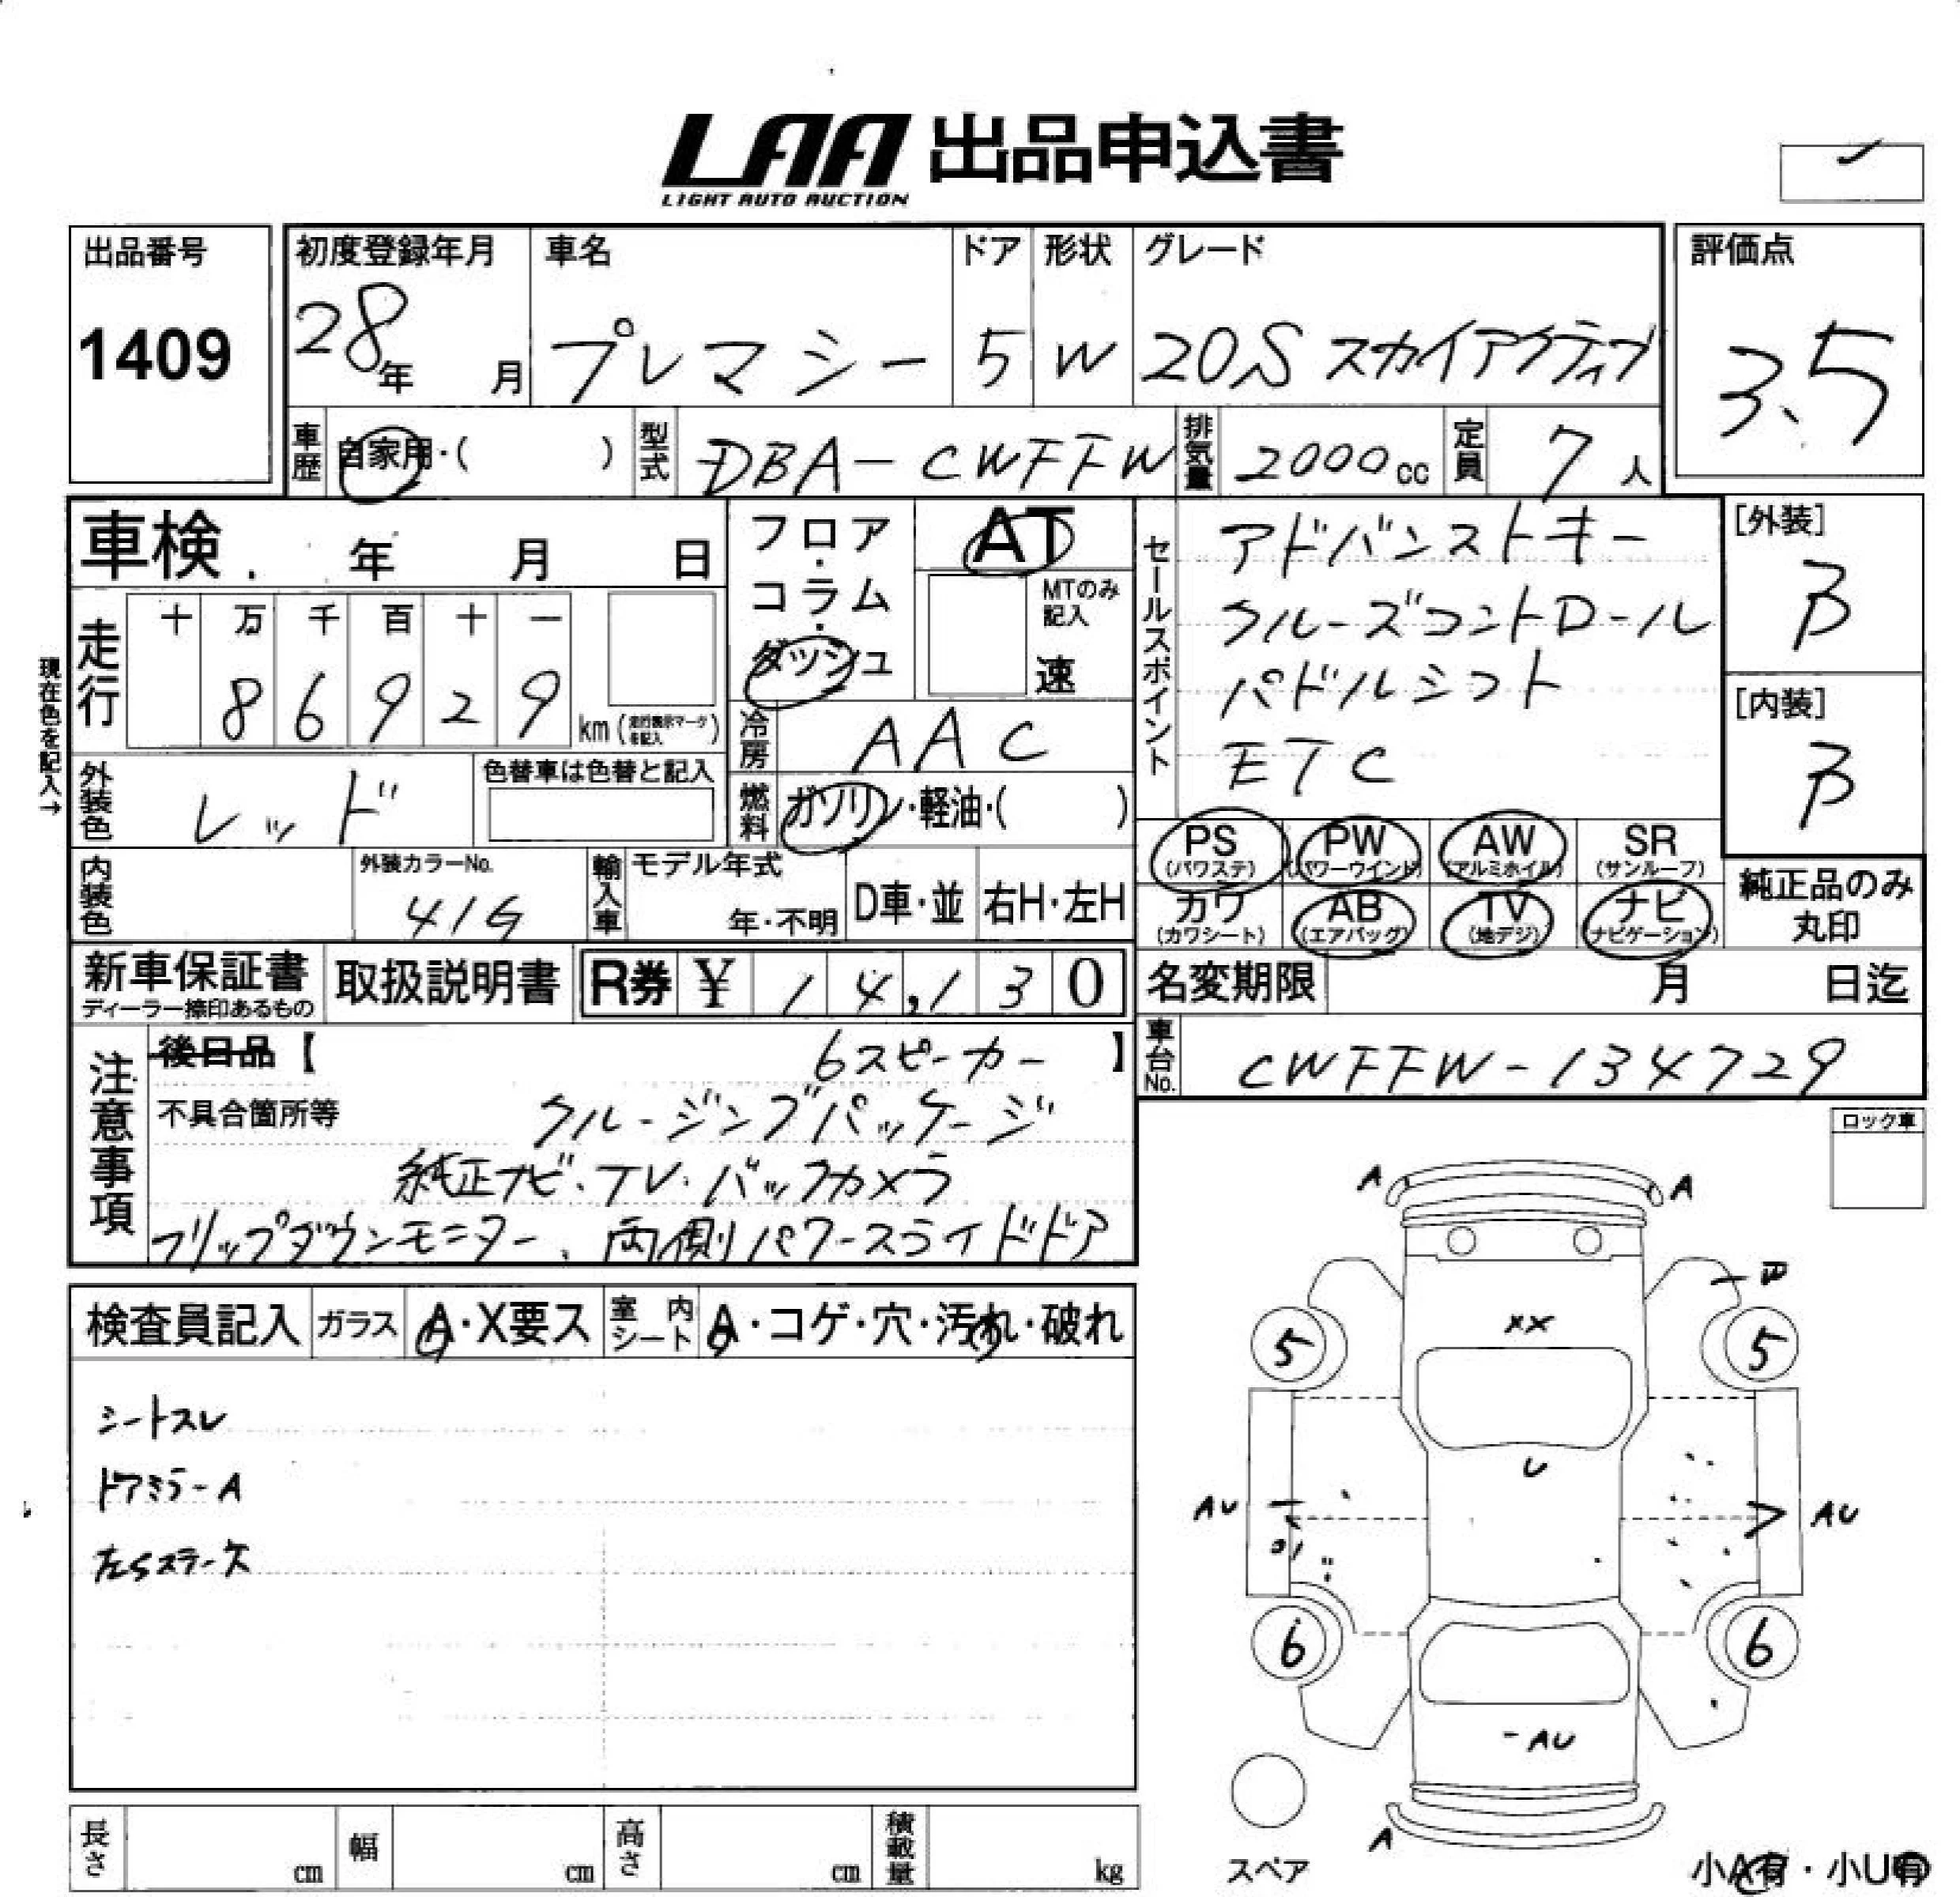 LAA 出品申込書
LIGHT AUTO AUCTION
出品番号 初度登録年月 車名 ドア 形状 グレード 評価点
1409 28年 月 プレマシー 5 W 20S スカイアクティブ 3.5
車歴 自家用・( ) 型式 DBA-CWFFW 排気量 2000cc 定員 7人
車検 年 月 日
フロア・コラム・ダッシュ
AT
MTのみ記入
速
セールスポイント
アドバンストキー
クルーズコントロール
パドルシフト
ETC
[外装]
B
[内装]
B
現在色を記入→
走行 十 万 千 百 十 一
8 6 9 2 9 km (走行表示マークを記入)
冷房 AAC
外装色 レッド 色替車は色替と記入
燃料 ガソリン・軽油・( )
PS (パワステ) PW (パワーウインド) AW (アルミホイル) SR (サンルーフ)
カワ (カワシート) AB (エアバッグ) TV (地デジ) ナビ (ナビゲーション)
純正品のみ丸印
内装色 外装カラーNo. 41G 輸入車 モデル年式 年・不明 D車・並 右H・左H
新車保証書 ディーラー捺印あるもの 取扱説明書 R券 ¥ 14,130
名変期限 月 日迄
車台No. CWFFW-134729
注意事項
後日品【 6スピーカー 】
不具合箇所等 クルージングパッケージ
純正ナビ・TV・バックカメラ
フリップダウンモニター、両側パワースライドドア
ロック車
検査員記入 ガラス A・X要ス 室内シート A・コゲ・穴・汚れ・破れ
シートスレ
ドアミラーA
A A
XX
5 5
U
AU AU
6 6
-AU
A
スペア
小A有・小U有
長さ cm 幅 cm 高さ cm 積載量 kg